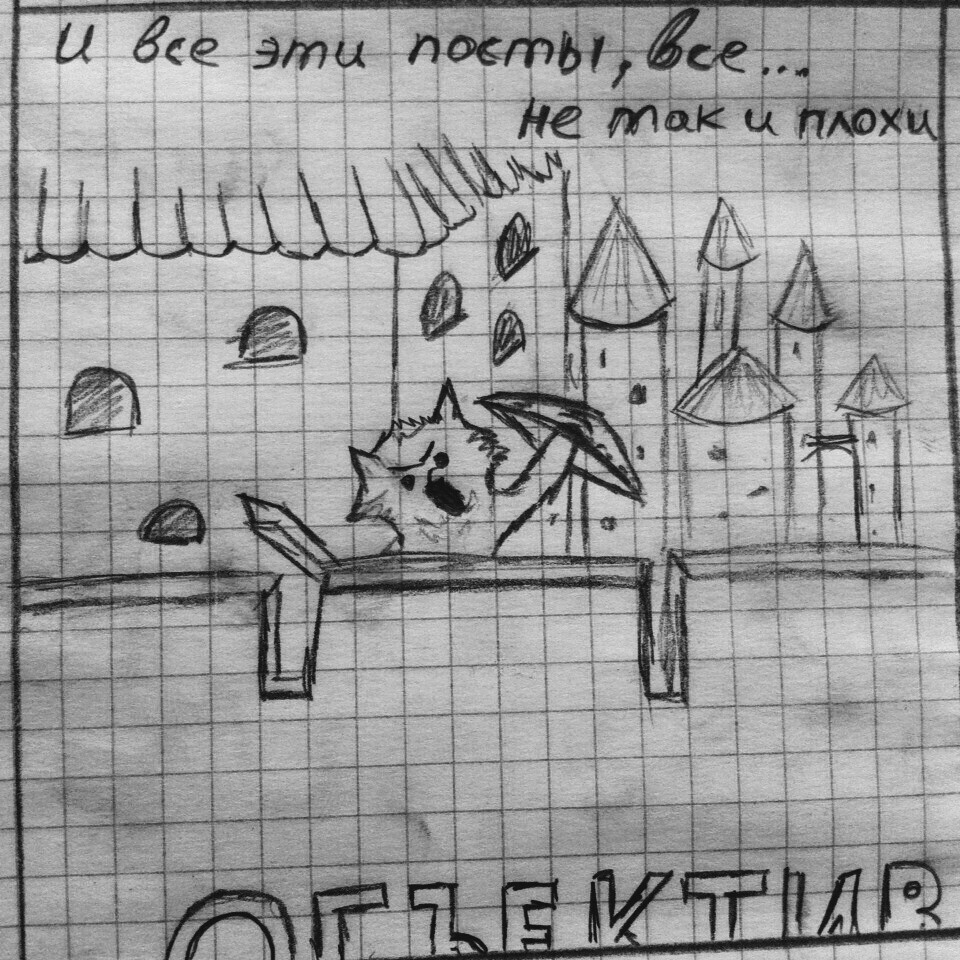 И все эти посты, все...
не так и плохи
ОБЪЕКТИВ